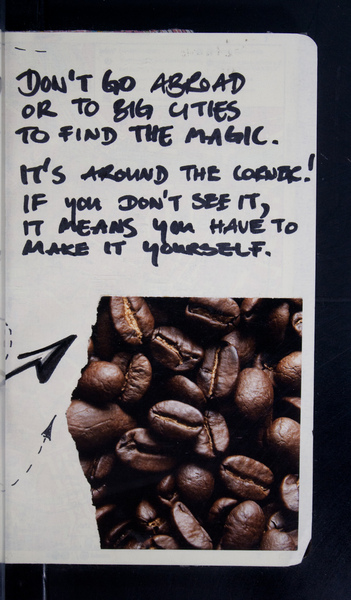 DON'T GO ABROAD
OR TO BIG CITIES
TO FIND THE MAGIC.
IT'S AROUND THE CORNER!
IF YOU DON'T SEE IT,
IT MEANS YOU HAVE TO
MAKE IT YOURSELF.